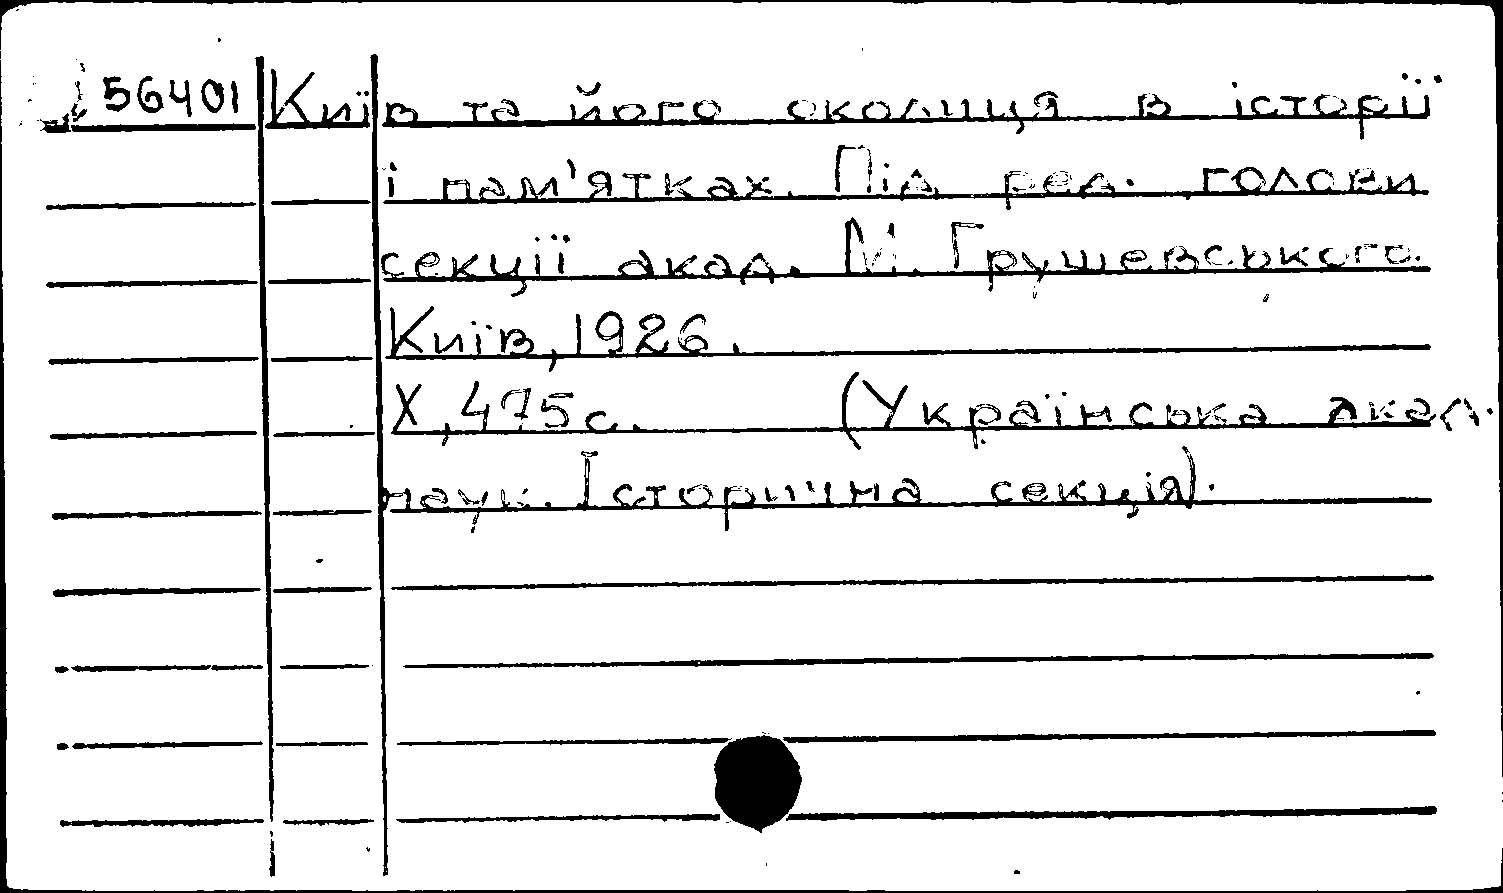 56401 Київ та його околиця в історії
і пам'ятках. Під ред. голови
секції акад. М. Грушевського.
Київ, 1926.
X, 475 с. (Українська акад.
наук. Історична секція).